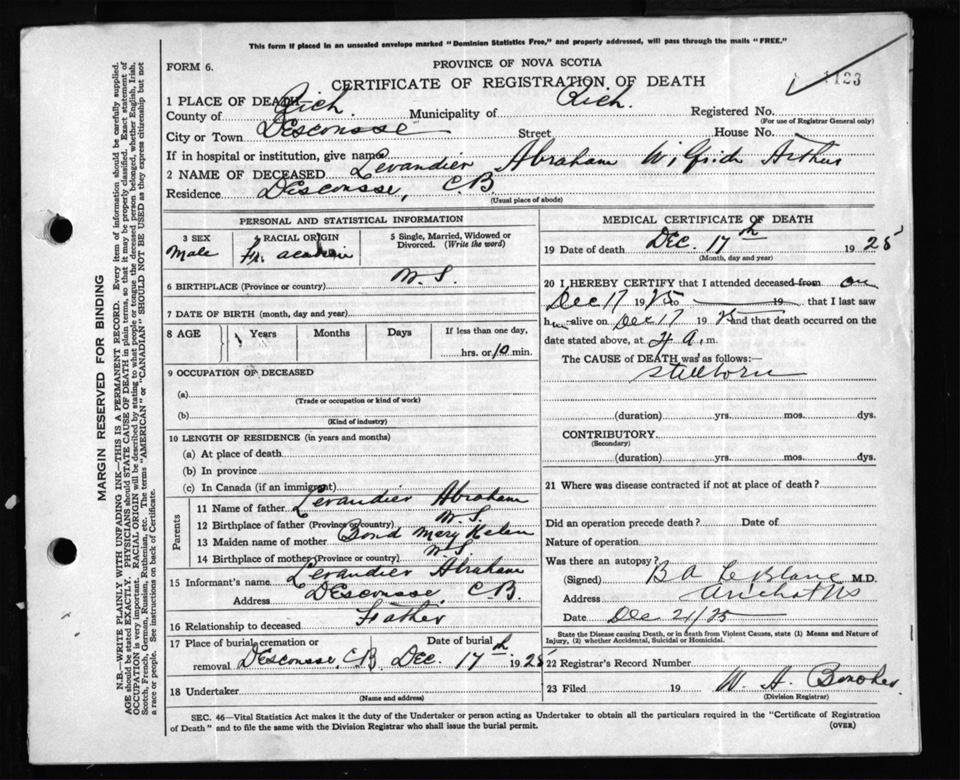 This form if placed in an unsealed envelope marked "Dominion Statistics Free," and properly addressed, will pass through the mails "FREE."
FORM 6.
PROVINCE OF NOVA SCOTIA
CERTIFICATE OF REGISTRATION OF DEATH
1123
1 PLACE OF DEATH
County of Rich. Municipality of Rich. Registered No.
(For use of Registrar General only)
City or Town Descousse Street House No.
If in hospital or institution, give name
2 NAME OF DECEASED Levandier Abraham Wilfrid Arthur
Residence Descousse, C.B.
(Usual place of abode)
PERSONAL AND STATISTICAL INFORMATION
3 SEX Male
4 RACIAL ORIGIN Fr. acadian
5 Single, Married, Widowed or Divorced. (Write the word)
6 BIRTHPLACE (Province or country) N.S.
7 DATE OF BIRTH (month, day and year)
8 AGE Years Months Days If less than one day,
hrs. or 10 min.
9 OCCUPATION OF DECEASED
(a)
(Trade or occupation or kind of work)
(b)
(Kind of industry)
10 LENGTH OF RESIDENCE (in years and months)
(a) At place of death
(b) In province
(c) In Canada (if an immigrant)
Parents
11 Name of father Levandier Abraham
12 Birthplace of father (Province or country) N.S.
13 Maiden name of mother Bond Mary Helen
14 Birthplace of mother (Province or country) N.S.
15 Informant's name Levandier Abraham
Address Descousse, C.B.
16 Relationship to deceased Father
17 Place of burial, cremation or Date of burial
removal Descousse C.B. Dec. 17th 1925
18 Undertaker
(Name and address)
MEDICAL CERTIFICATE OF DEATH
19 Date of death Dec. 17th 1925
(Month, day and year)
20 I HEREBY CERTIFY that I attended deceased from on
Dec 17 1925 to 19 that I last saw
him alive on Dec 17 1925 and that death occurred on
date stated above, at 4 a.m.
The CAUSE of DEATH was as follows:—
Stillborn
(duration) yrs. mos. dys.
CONTRIBUTORY
(Secondary)
(duration) yrs. mos. dys.
21 Where was disease contracted if not at place of death?
Did an operation precede death? Date of
Nature of operation
Was there an autopsy?
(Signed) B A LeBlanc M.D.
Address Arichat NS
Date Dec 21/25
State the Disease causing Death, or in death from Violent Causes, state (1) Means and Nature of
Injury, (2) whether Accidental, Suicidal or Homicidal.
22 Registrar's Record Number
23 Filed 19 W. A.
(Division Registrar)
SEC. 46—Vital Statistics Act makes it the duty of the Undertaker or person acting as Undertaker to obtain all the particulars required in the "Certificate of Registration
of Death" and to file the same with the Division Registrar who shall issue the burial permit.
(OVER)
MARGIN RESERVED FOR BINDING
N.B.—WRITE PLAINLY WITH UNFADING INK—THIS IS A PERMANENT RECORD. Every item of information should be carefully supplied.
AGE should be stated EXACTLY. PHYSICIANS should STATE CAUSE OF DEATH in plain terms, so that it may be properly classified. Exact statement of
OCCUPATION is very important. RACIAL ORIGIN will be described by stating to what people or tongue the deceased person belonged, whether English, Irish,
Scotch, French, German, Russian, Ruthenian, etc. The terms "AMERICAN" or "CANADIAN" SHOULD NOT BE USED as they express citizenship but not
a race or people. See instructions on back of Certificate.